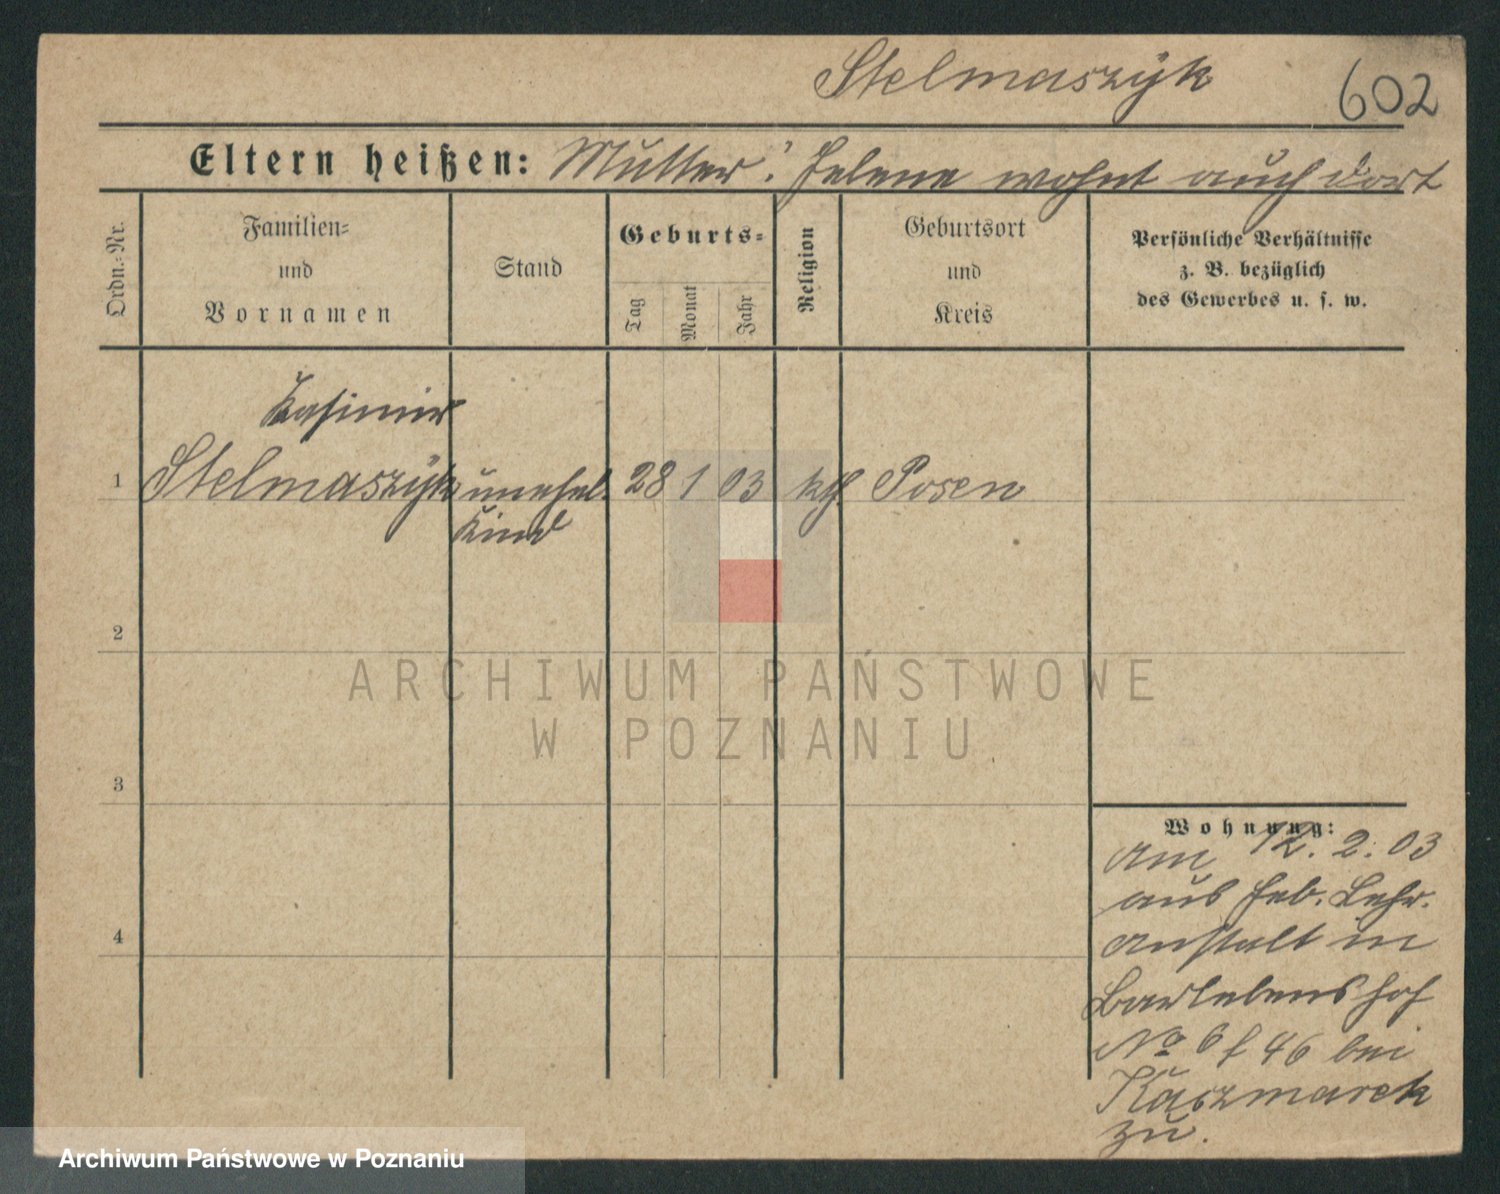 Stelmaszÿk
602
Eltern heißen: Mutter: Helene wohnt auch dort
Ordn.-Nr.
Familien-
und
Vornamen
Stand
Geburts-
Tag
Monat
Jahr
Religion
Geburtsort
und
Kreis
Persönliche Verhältnisse
z. B. bezüglich
des Gewerbes u. s. w.
Kasimir
1 Stelmaszÿk unehel. 28 1 03 kth. Posen
Kind
2
ARCHIWUM PAŃSTWOWE
W POZNANIU
3
Wohnung:
am 12. 2. 03
aus Heb. Lehr.
anstalt in
Bartelenshof
No 6 f 46 bei
Kaszmarek
zu.
4
Archiwum Państwowe w Poznaniu